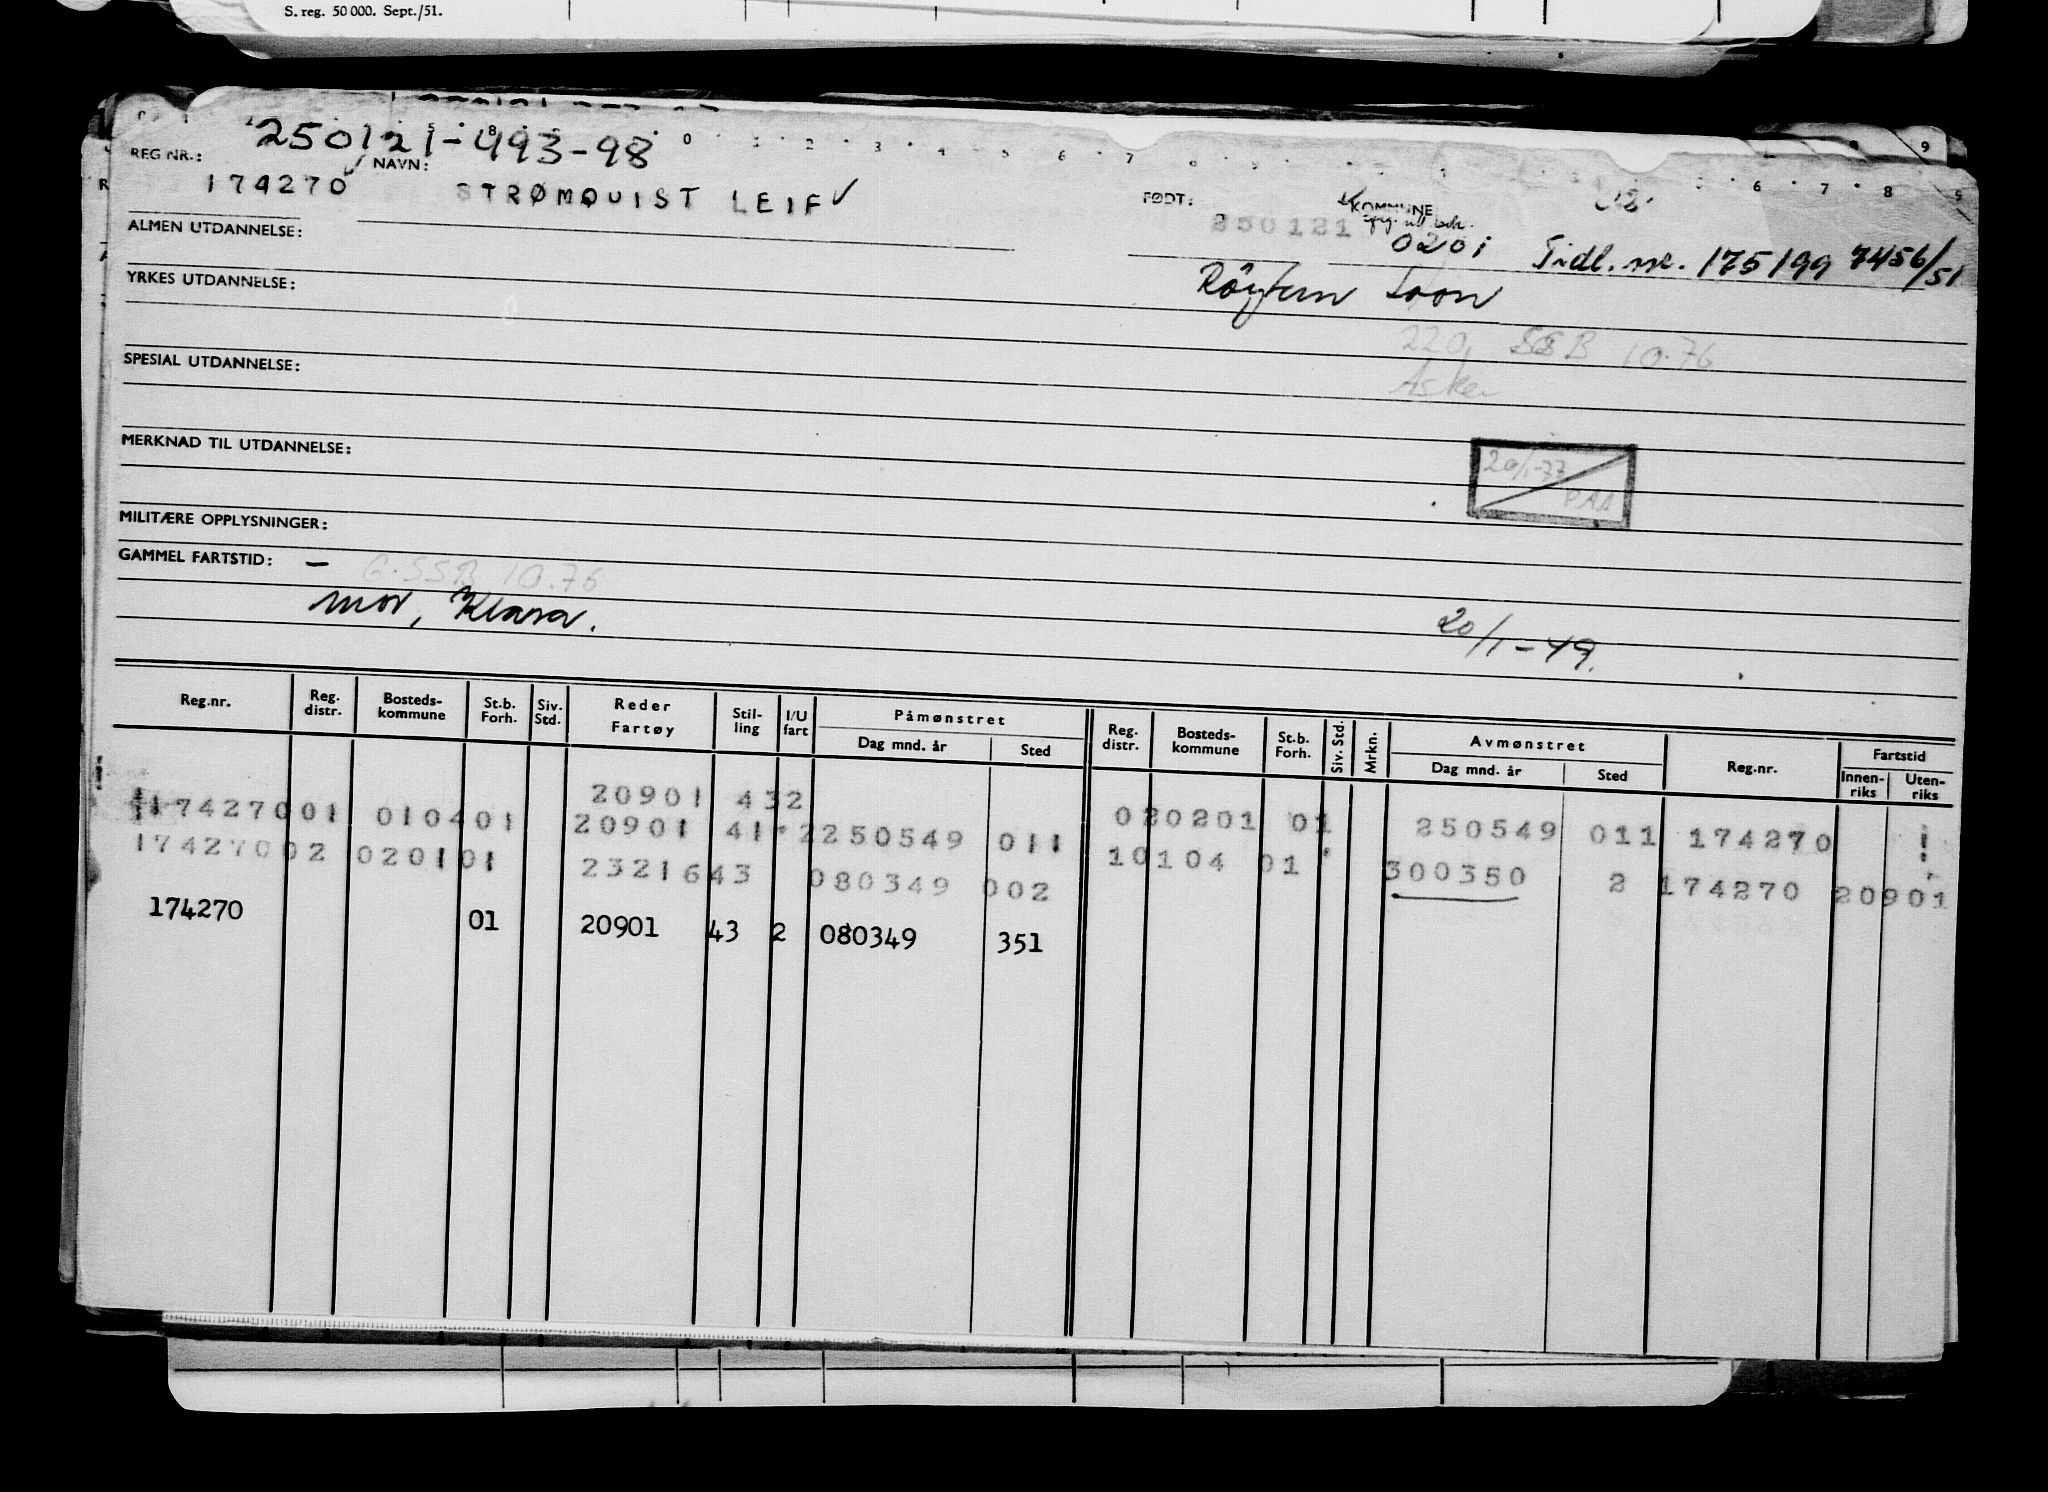 S. reg. 50 000. Sept./51.
250121-493-98
REG NR.: NAVN: FØDT: KOMMUNE
174270 STRØMQUIST LEIF 250121 0201 Tidl. nr. 175199 7456/51
ALMEN UTDANNELSE:
YRKES UTDANNELSE:
220, SSB 10.76
SPESIAL UTDANNELSE: Asker
MERKNAD TIL UTDANNELSE:
20/1-77
MILITÆRE OPPLYSNINGER:
GAMMEL FARTSTID: –
SSB 10.76
mor, Klara. 20/1-49.
Reg.nr. Reg. distr. Bosteds-kommune St.b. Forh. Siv. Std. Reder Fartøy Stil-ling I/U fart Påmønstret Dag mnd. år Sted Reg. distr. Bosteds-kommune St.b. Forh. Siv. Std. Mrkn. Avmønstret Dag mnd. år Sted Reg.nr. Fartstid Innen-riks Uten-riks
20901 432
17427001 010401 20901 41 2250549 011 020201 01 250549 011 174270
17427002 020101 2321643 080349 002 10104 01 300350 2 174270 20901
174270 01 20901 43 2 080349 351